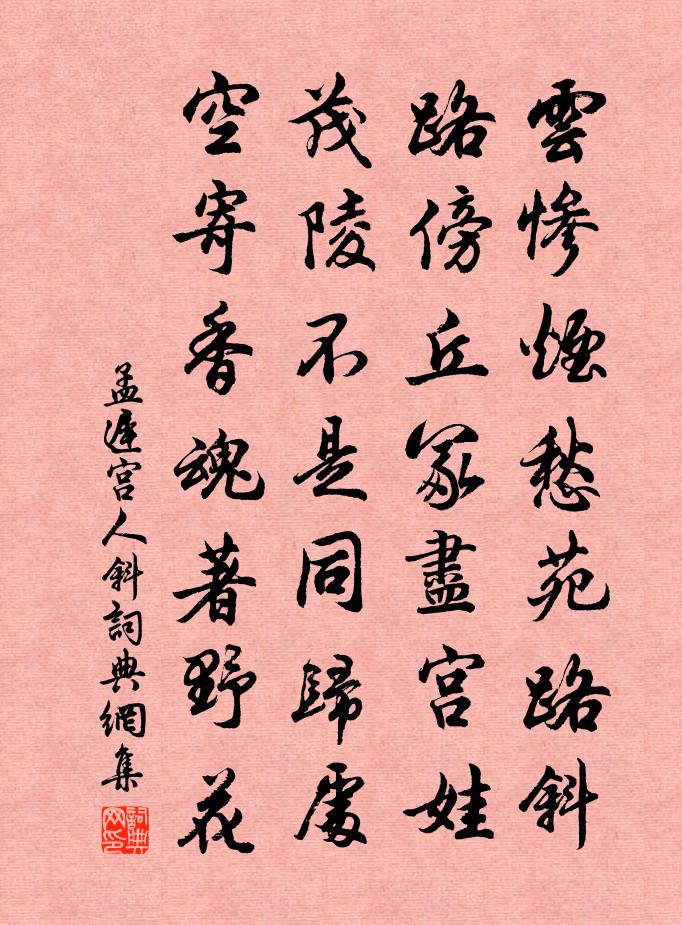 雲慘煙愁苑路斜
路傍丘冢盡宮娃
茂陵不是同歸處
空寄香魂著野花
孟遲宮人斜詞典網集
詞典网印